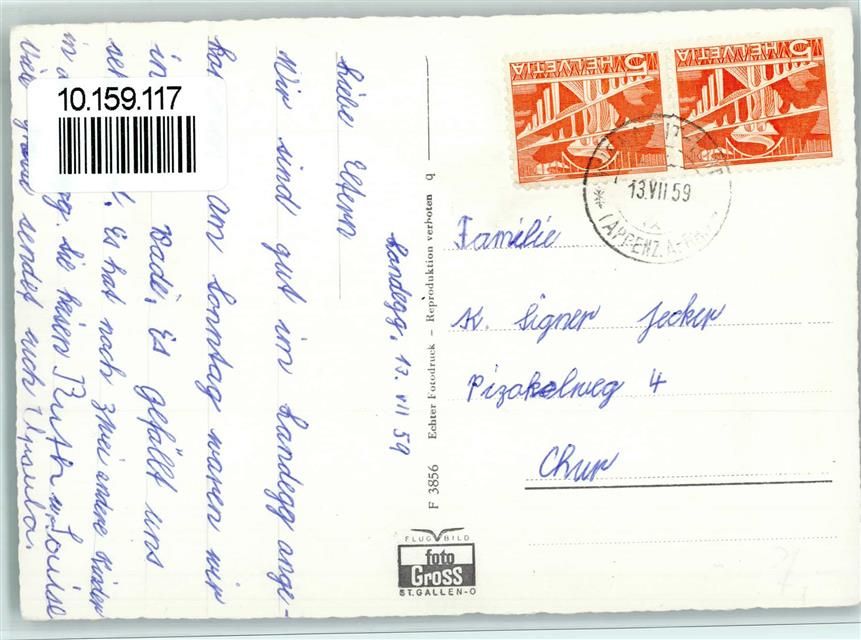 Landegg, 13. VII 59
Liebe Eltern
Wir sind gut im Landegg ange-
Am Sonntag waren wir
in Bade. Es gefällt uns
Es hat noch zwei andere Kinder
in Sie heisen Ruth u. Louise
viele grüsse sendet euch Ursula.
10.159.117
F 3856 Echter Fotodruck – Reproduktion verboten q
FLUGBILD
foto
Gross
ST. GALLEN-O
5 HELVETIA
5 HELVETIA
13.VII 59
Familie
K. Signer Jecker
Pizokelweg 4
Chur